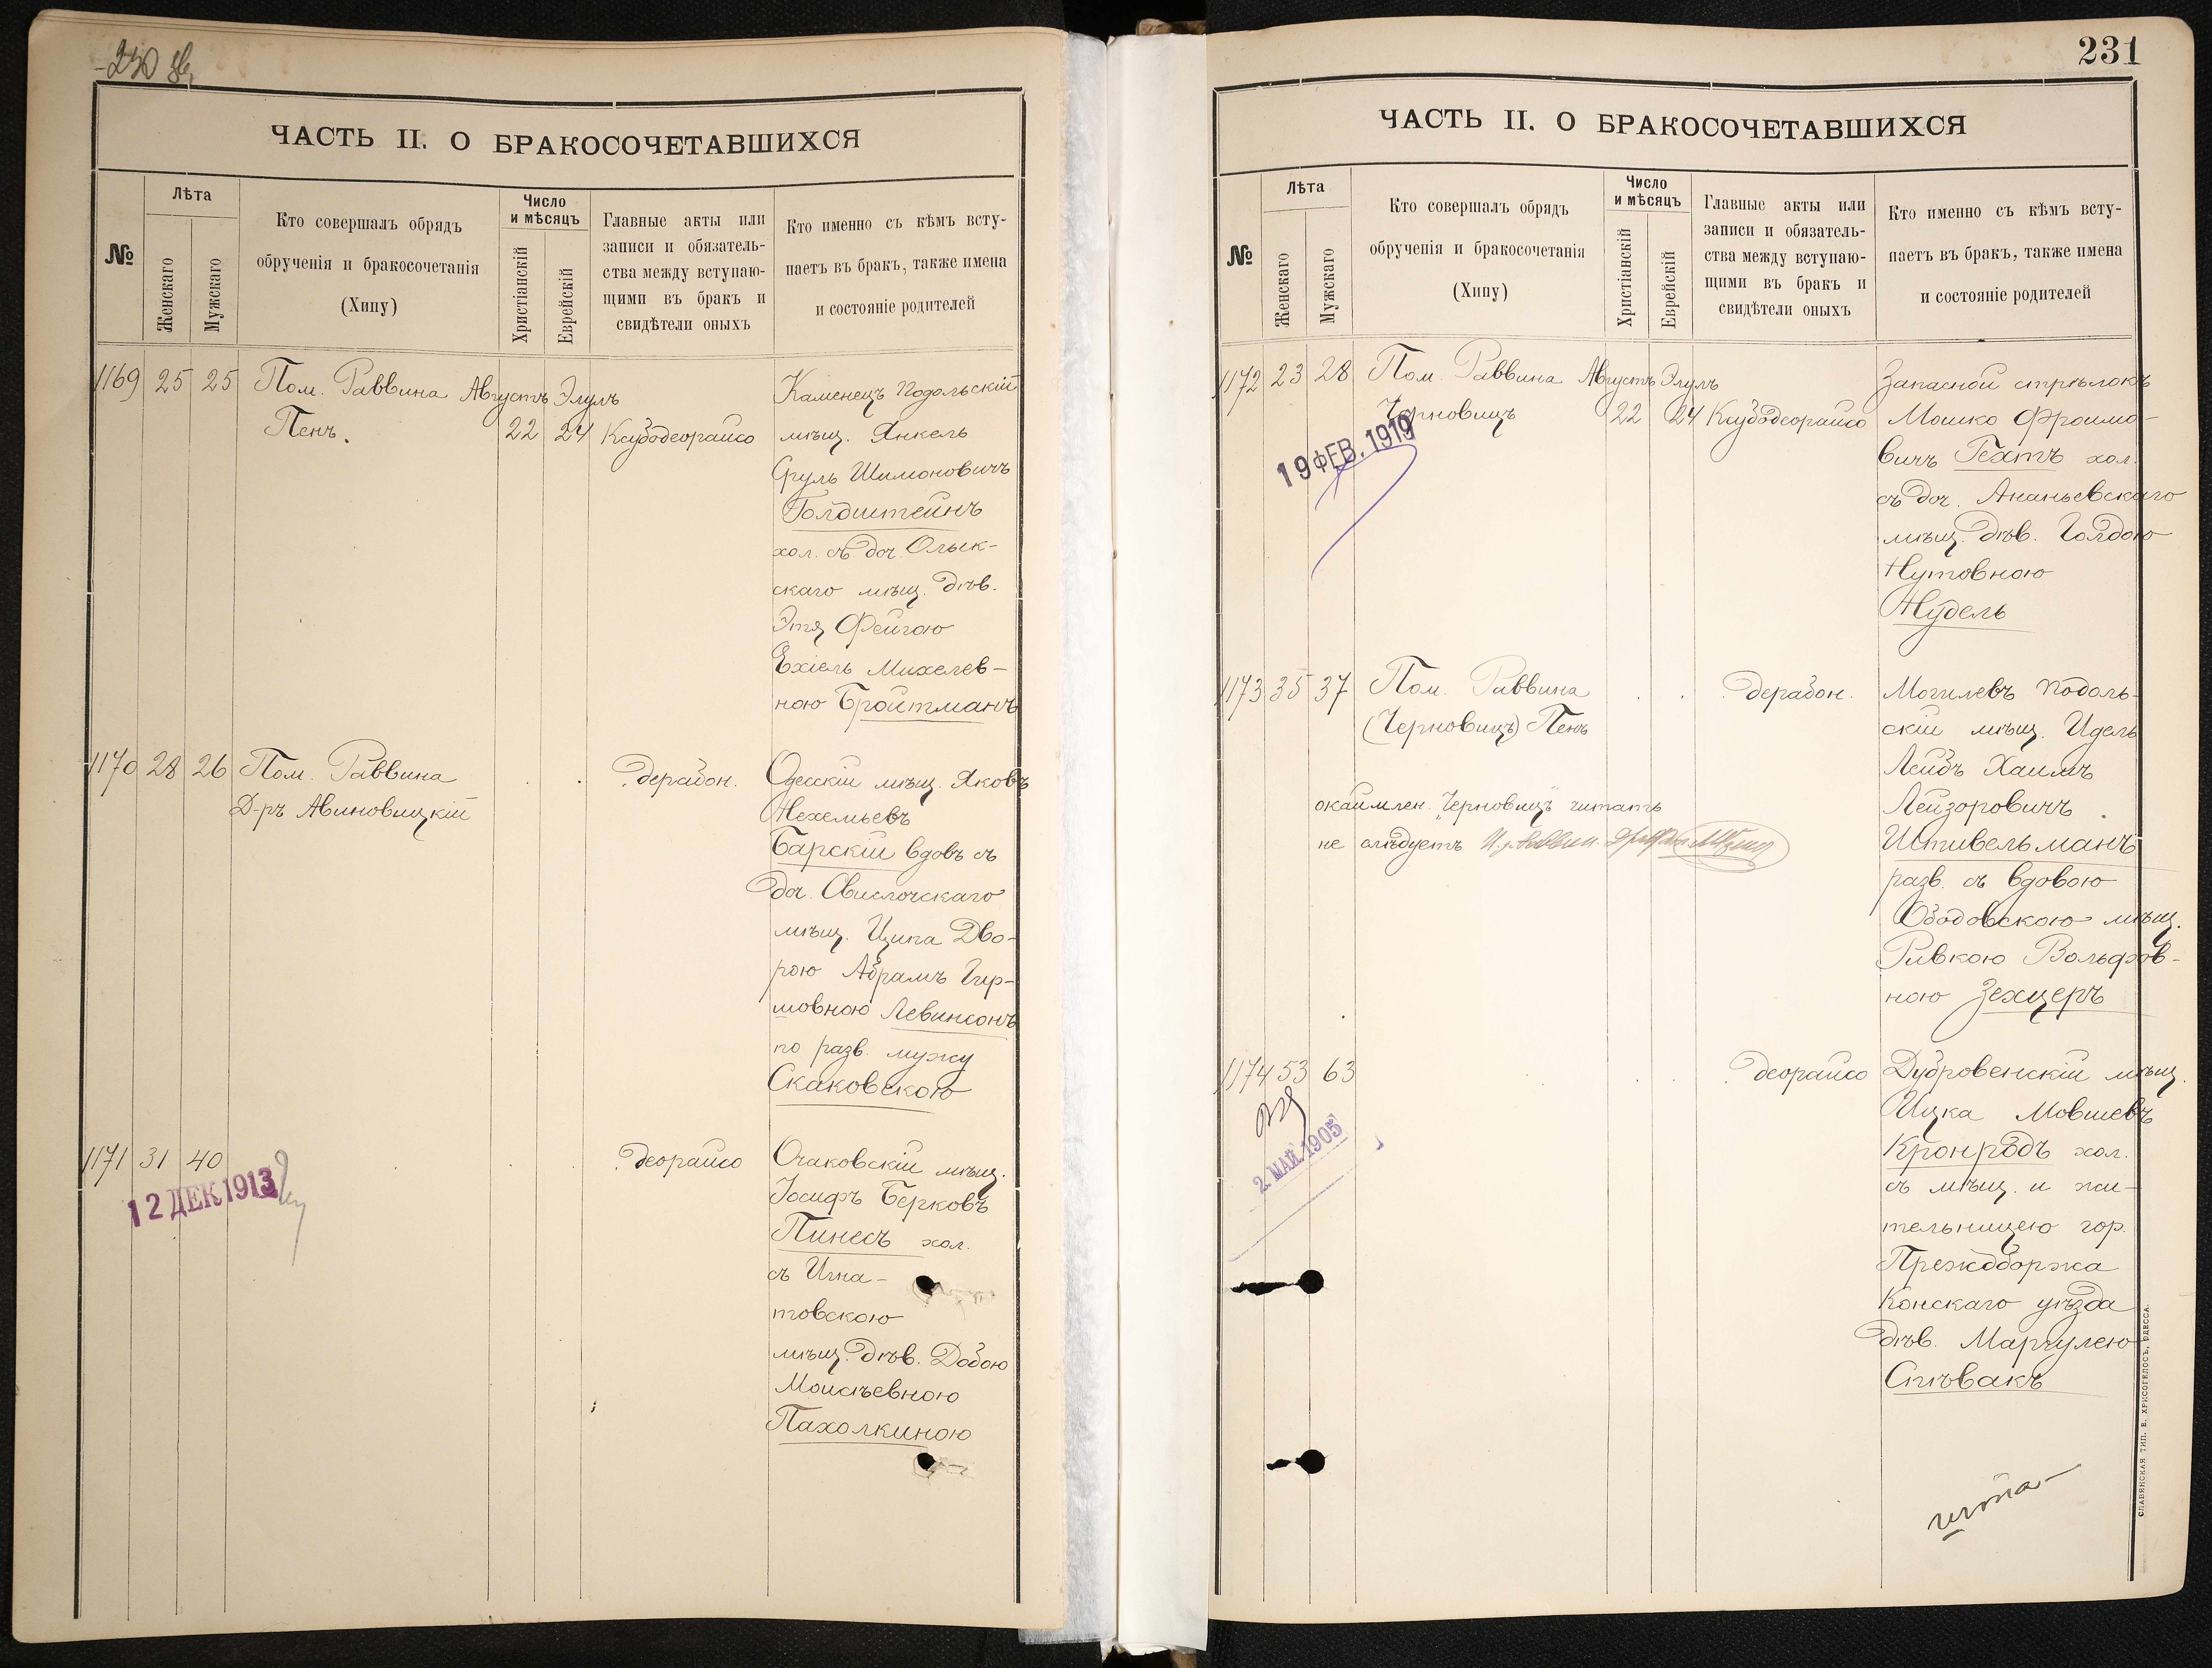 230 об.
ЧАСТЬ II. О БРАКОСОЧЕТАВШИХСЯ
№
Лѣта
Женскаго
Мужскаго
Кто совершалъ обрядъ
обрученія и бракосочетанія
(Хипу)
Число
и мѣсяцъ
Христіанскій
Еврейскій
Главные акты или
записи и обязатель-
ства между вступаю-
щими въ бракъ и
свидѣтели оныхъ
Кто именно съ кѣмъ всту-
паетъ въ бракъ, также имена
и состояніе родителей
1169 25 25 Пом. Раввина Августъ Элулъ
Пенъ. 22 24 Ксубодеорайсо
Каменецъ Подольскій
мѣщ. Янкель
Сруль Шимоновичъ
Голдштейнъ
хол. съ доч. Олык-
скаго мѣщ. дѣв.
Этя Фейгою
Ехіель Михелев-
ною Бройтманъ
1170 28 26 Пом. Раввина
Д-ръ Авиновицкій
. . . дерабон.
Одесскій мѣщ. Яковъ
Нехемьевъ
Барскій вдовъ съ
доч. Свислочскаго
мѣщ. Ципа Дво-
рою Абрамъ Гир-
шовною Левинсонъ
по разв. мужу
Скаковскою
1171 31 40 . . . деорайсо
12 ДЕК 1913
Очаковскій мѣщ.
Іосифъ Берковъ
Пинесъ хол.
съ Игна-
товскою
мѣщ. дѣв. Добою
Моисѣевною
Пахолкиною
231
ЧАСТЬ II. О БРАКОСОЧЕТАВШИХСЯ
№
Лѣта
Женскаго
Мужскаго
Кто совершалъ обрядъ
обрученія и бракосочетанія
(Хипу)
Число
и мѣсяцъ
Христіанскій
Еврейскій
Главные акты или
записи и обязатель-
ства между вступаю-
щими въ бракъ и
свидѣтели оныхъ
Кто именно съ кѣмъ всту-
паетъ въ бракъ, также имена
и состояніе родителей
1172 23 28 Пом. Раввина Августъ Элулъ
Черновицъ 22 24 Ксубодеорайсо
19 ФЕВ. 1919
Запасной стрѣлокъ
Мошко Фроимо-
вичъ Гехтъ хол.
съ доч. Ананьевскаго
мѣщ. дѣв. Голдою
Нутовною
Нудель
1173 35 37 Пом. Раввина . . . дерабон.
(Черновицъ) Пенъ
окаймлен. "Черновицъ" читать
не слѣдуетъ
Могилевъ Подоль-
скій мѣщ. Идель
Лейбъ Хаимъ
Лейзоровичъ
Иштивельманъ
разв. съ вдовою
Ободовскою мѣщ.
Ривкою Вольфов-
ною Зехцеръ
1174 53 63 . . . деорайсо
2 МАЙ 1905
Дубровенскій мѣщ.
Ицка Мовшевъ
Кронродъ хол.
съ мѣщ. и жи-
тельницею гор.
Прежодборжа
Конскаго уѣзда
дѣв. Маргулею
Спѣвакъ
СЛАВЯНСКАЯ ТИП. Е. ХРИСОГЕЛОСЪ, ОДЕССА.